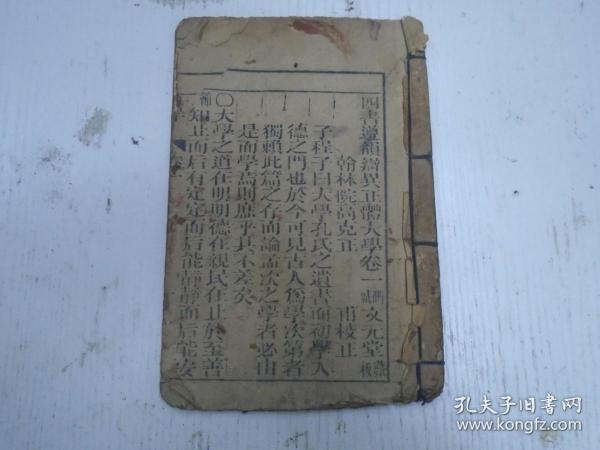 四書遵韻辯異正體大學卷一 文元堂藏板
翰林院高克正 甫校正
子程子曰大學孔氏之遺書而初學入
德之門也於今可見古人爲學次第者
獨賴此篇之存而論孟次之學者必由
是而學焉則庶乎其不差矣
〇大學之道在明明德在親民在止於至善
知止而后有定定而后能靜靜而后能安
孔夫子旧书网
www.kongfz.com